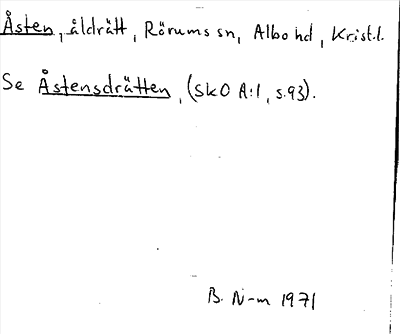 Åsten, åldrätt, Rörums sn, Albo hd, Krist.l.
Se Åstensdrätten, (SkO A:1, s.93).
B. N-m 1971